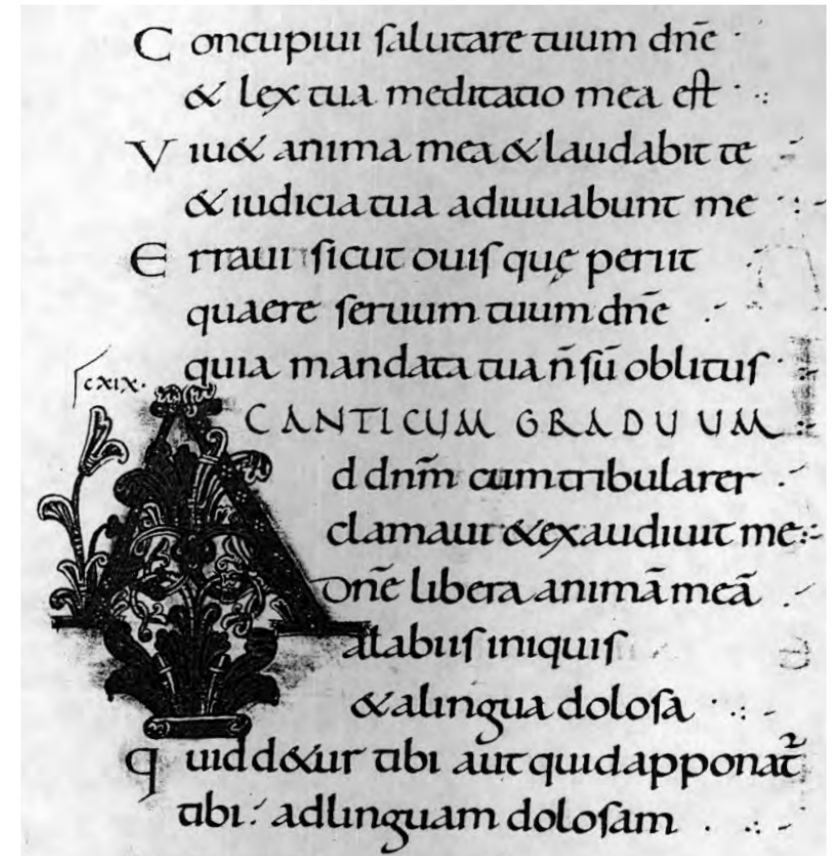 Concupiui salutare tuum dnē
& lęx tua meditatio mea est
Viu& anima mea & laudabit te
& iudicia tua adiuuabunt me
Erraui sicut ouis quę periit
quaere seruum tuum dnē
quia mandata tua n̄ sū oblitus
cxix.
CANTICUM GRADUUM
Ad dnm̄ cum tribularer
clamaui & exaudiuit me
Dnē libera animā meā
a labiis iniquis
& a lingua dolosa
quid d&ur tibi aut quid apponat᷑
tibi ad linguam dolosam